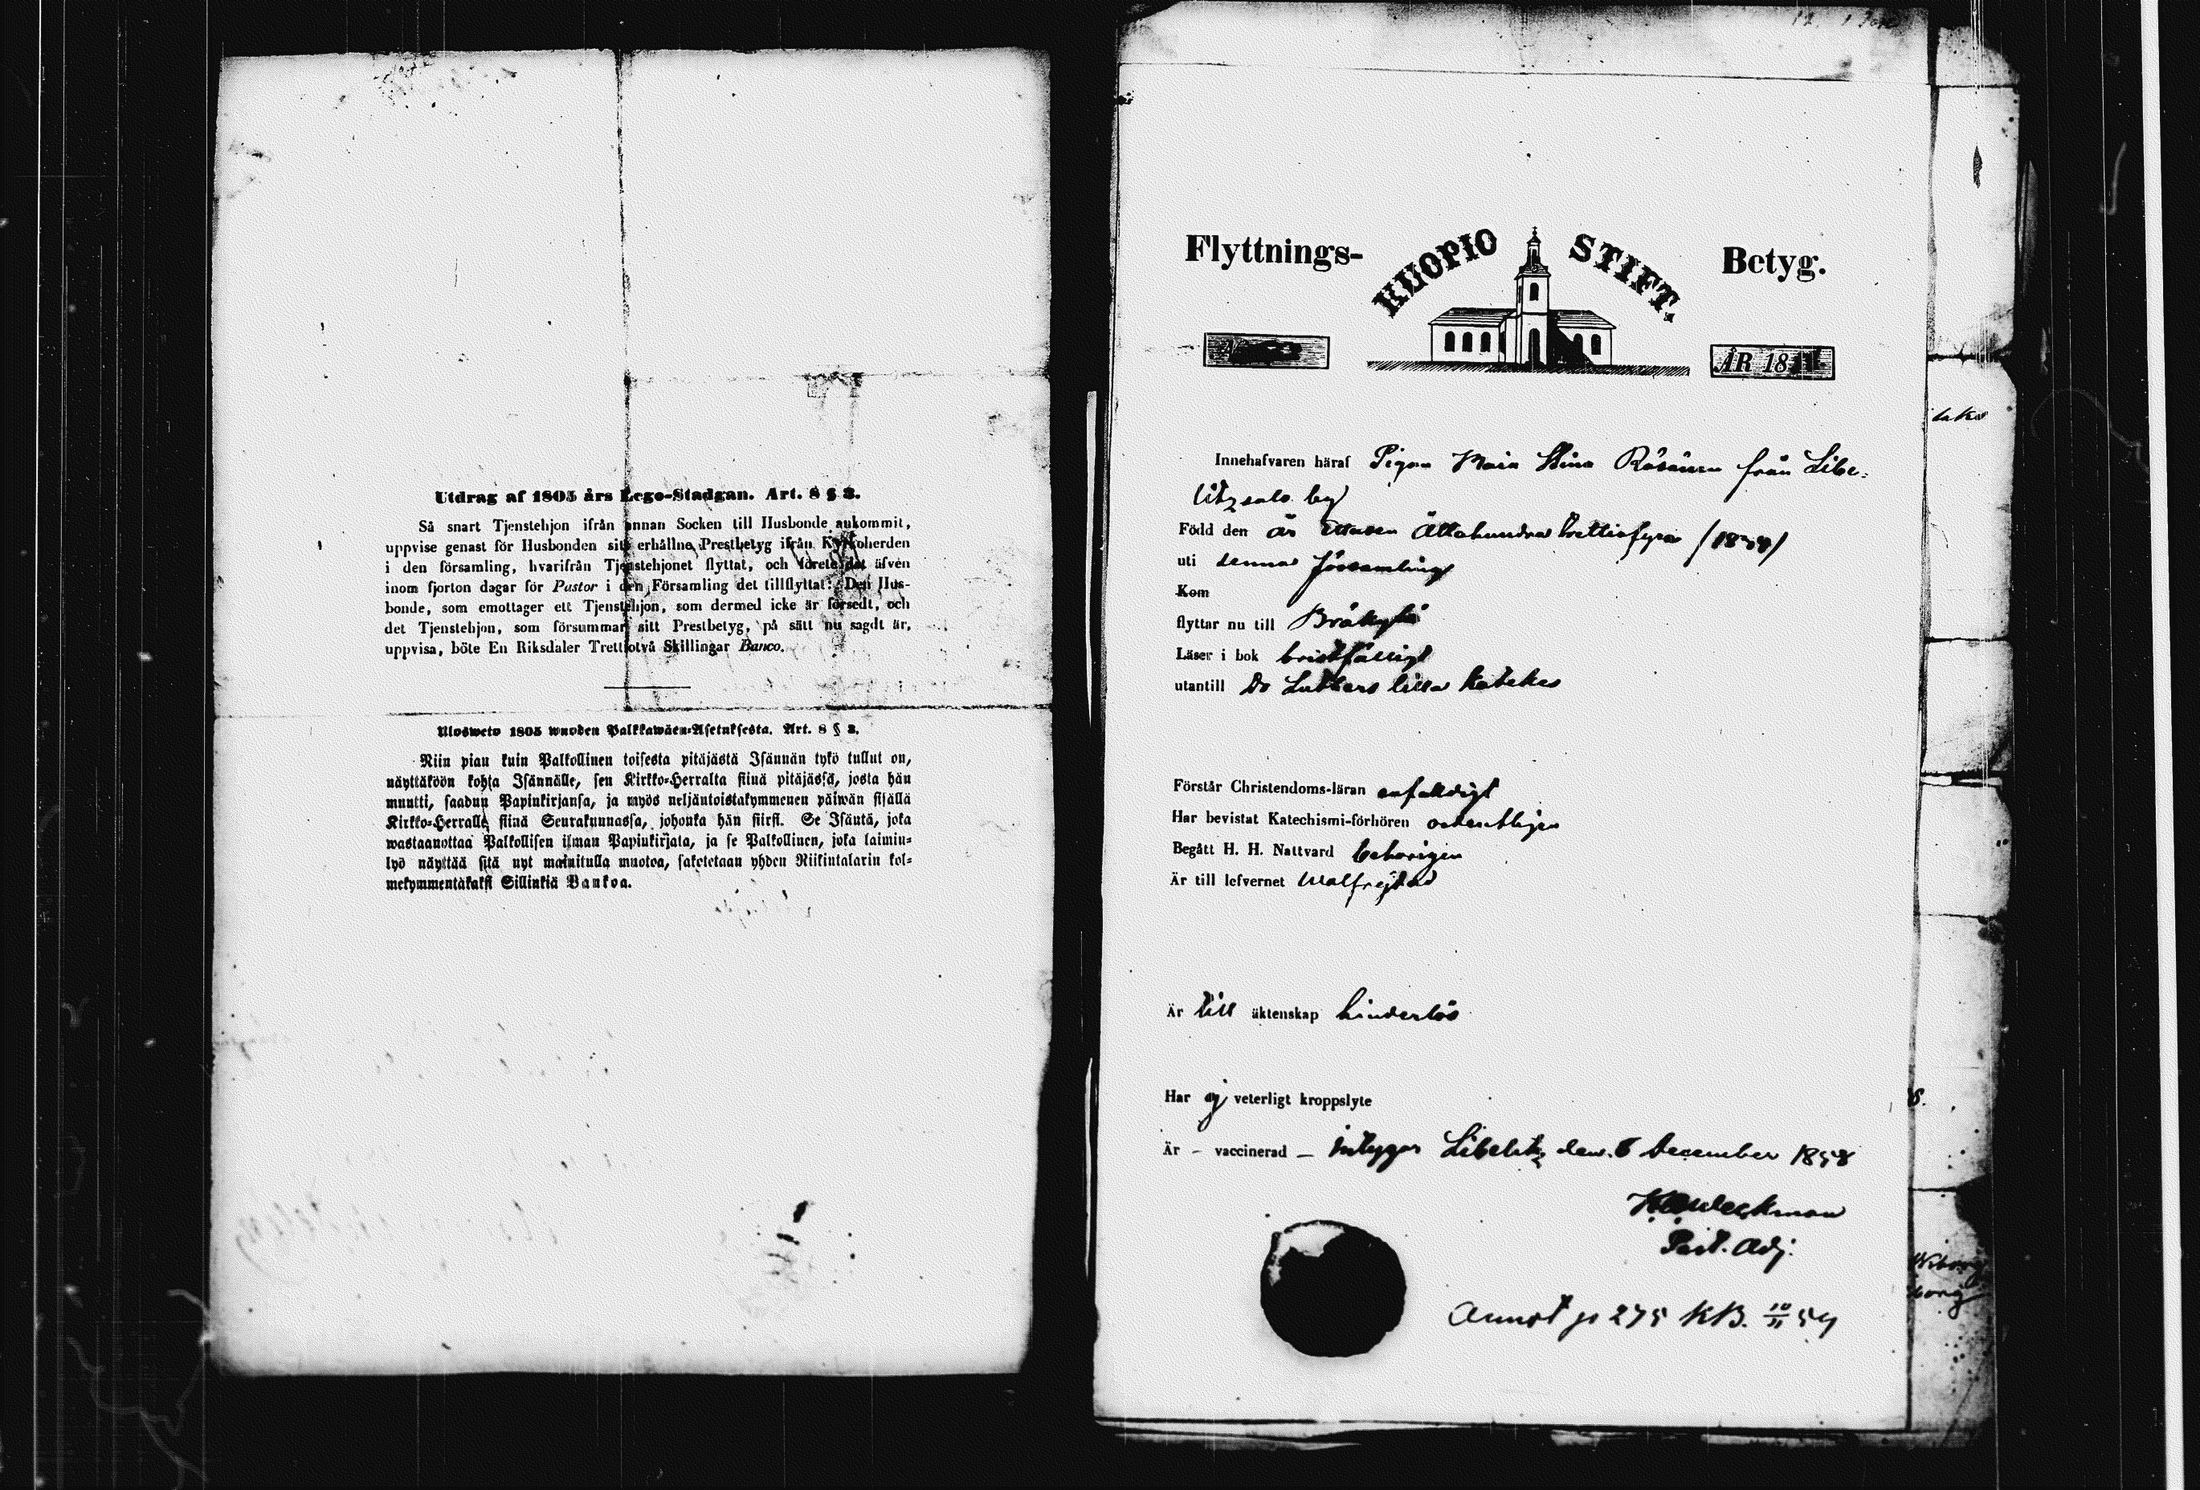 Utdrag af 1805 års Lego-Stadgan. Art. 8 § 3.
Så snart Tjenstehjon ifrån annan Socken till Husbonde ankommit,
uppvise genast för Husbonden sitt erhållne Prestbetyg ifrån Kyrkoherden
i den församling, hvarifrån Tjenstehjonet flyttat, och förete det äfven
inom fjorton dagar för Pastor i den Församling det tillflyttat: Den Hus-
bonde, som emottager ett Tjenstehjon, som dermed icke är försedt, och
det Tjenstehjon, som försummar sitt Prestbetyg, på sätt nu sagdt är,
uppvisa, böte En Riksdaler Trettiotvå Skillingar Banco.
Ulosweto 1805 wuoden Palkkawäen-Asetuksesta. Art. 8 § 3.
Niin pian kuin Palkollinen toisesta pitäjästä Isännän tykö tullut on,
näyttäköön kohta Isännälle, sen Kirkko-Herralta siinä pitäjässä, josta hän
muutti, saadun Papinkirjansa, ja myös neljäntoistakymmenen päiwän sisällä
Kirkko-Herralle siinä Seurakunnassa, johonka hän siirsi. Se Isäntä, joka
wastaanottaa Palkollisen ilman Papinkirjata, ja se Palkollinen, joka laimin-
lyö näyttää sitä nyt mainitulla muotoa, saketetaan yhden Riikintalarin kol-
mekymmentäkaksi Sillinkiä Bankoa.
Flyttnings- KUOPIO STIFT. Betyg.
ÅR 18
Innehafvaren häraf Pigan Maia Stina Räsänen från Libe-
litzsalo by
Född den år ettusen Åttahundra trettiofyra /1834/
uti denna församling
Kom
flyttar nu till Bräkylä
Läser i bok bristfälligt
utantill Do Luthers lilla katekes
Förstår Christendoms-läran enfaldigt
Har bevistat Katechismi-förhören ordentligen
Begått H. H. Nattvard behörigen
Är till lefvernet Wälfrejdad
Är till äktenskap hinderlös
Har ej veterligt kroppslyte
Är - vaccinerad - intygar Libelitz den 6 December 1858
Past. Adj.
Annot p 275 KB. 10/11 59